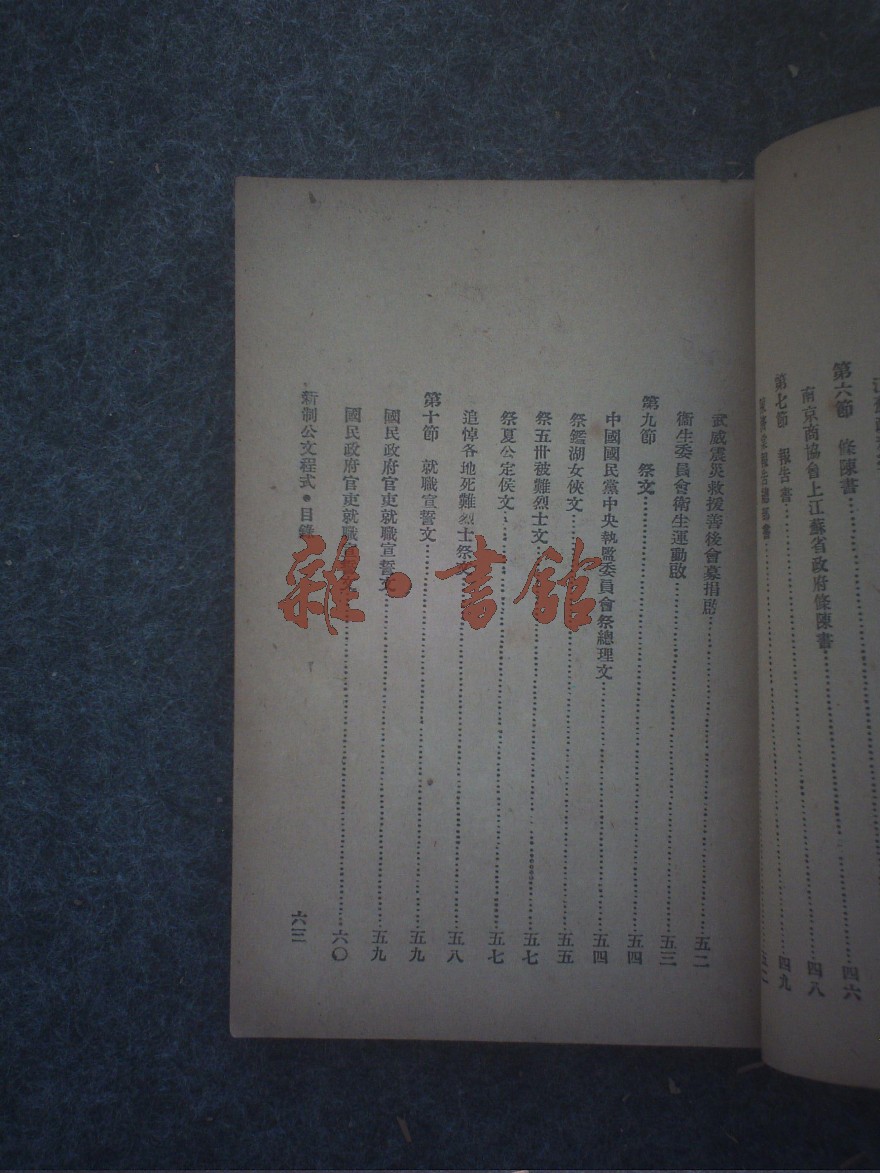 第六節 條陳書⋯⋯四六
南京商協會上江蘇省政府條陳書⋯⋯四八
第七節 報告書⋯⋯四九
武威震災救援善後會募捐啟⋯⋯五二
衞生委員會衞生運動啟⋯⋯五三
第九節 祭文⋯⋯五四
中國國民黨中央執監委員會祭總理文⋯⋯五四
祭鑑湖女俠文⋯⋯五五
祭五卅被難烈士文⋯⋯五七
祭夏公定侯文⋯⋯五七
追悼各地死難烈士祭⋯⋯五八
第十節 就職宣誓文⋯⋯五九
國民政府官吏就職宣誓文⋯⋯五九
國民政府官吏就職⋯⋯六〇
新制公文程式•目錄 六三
雜•書館